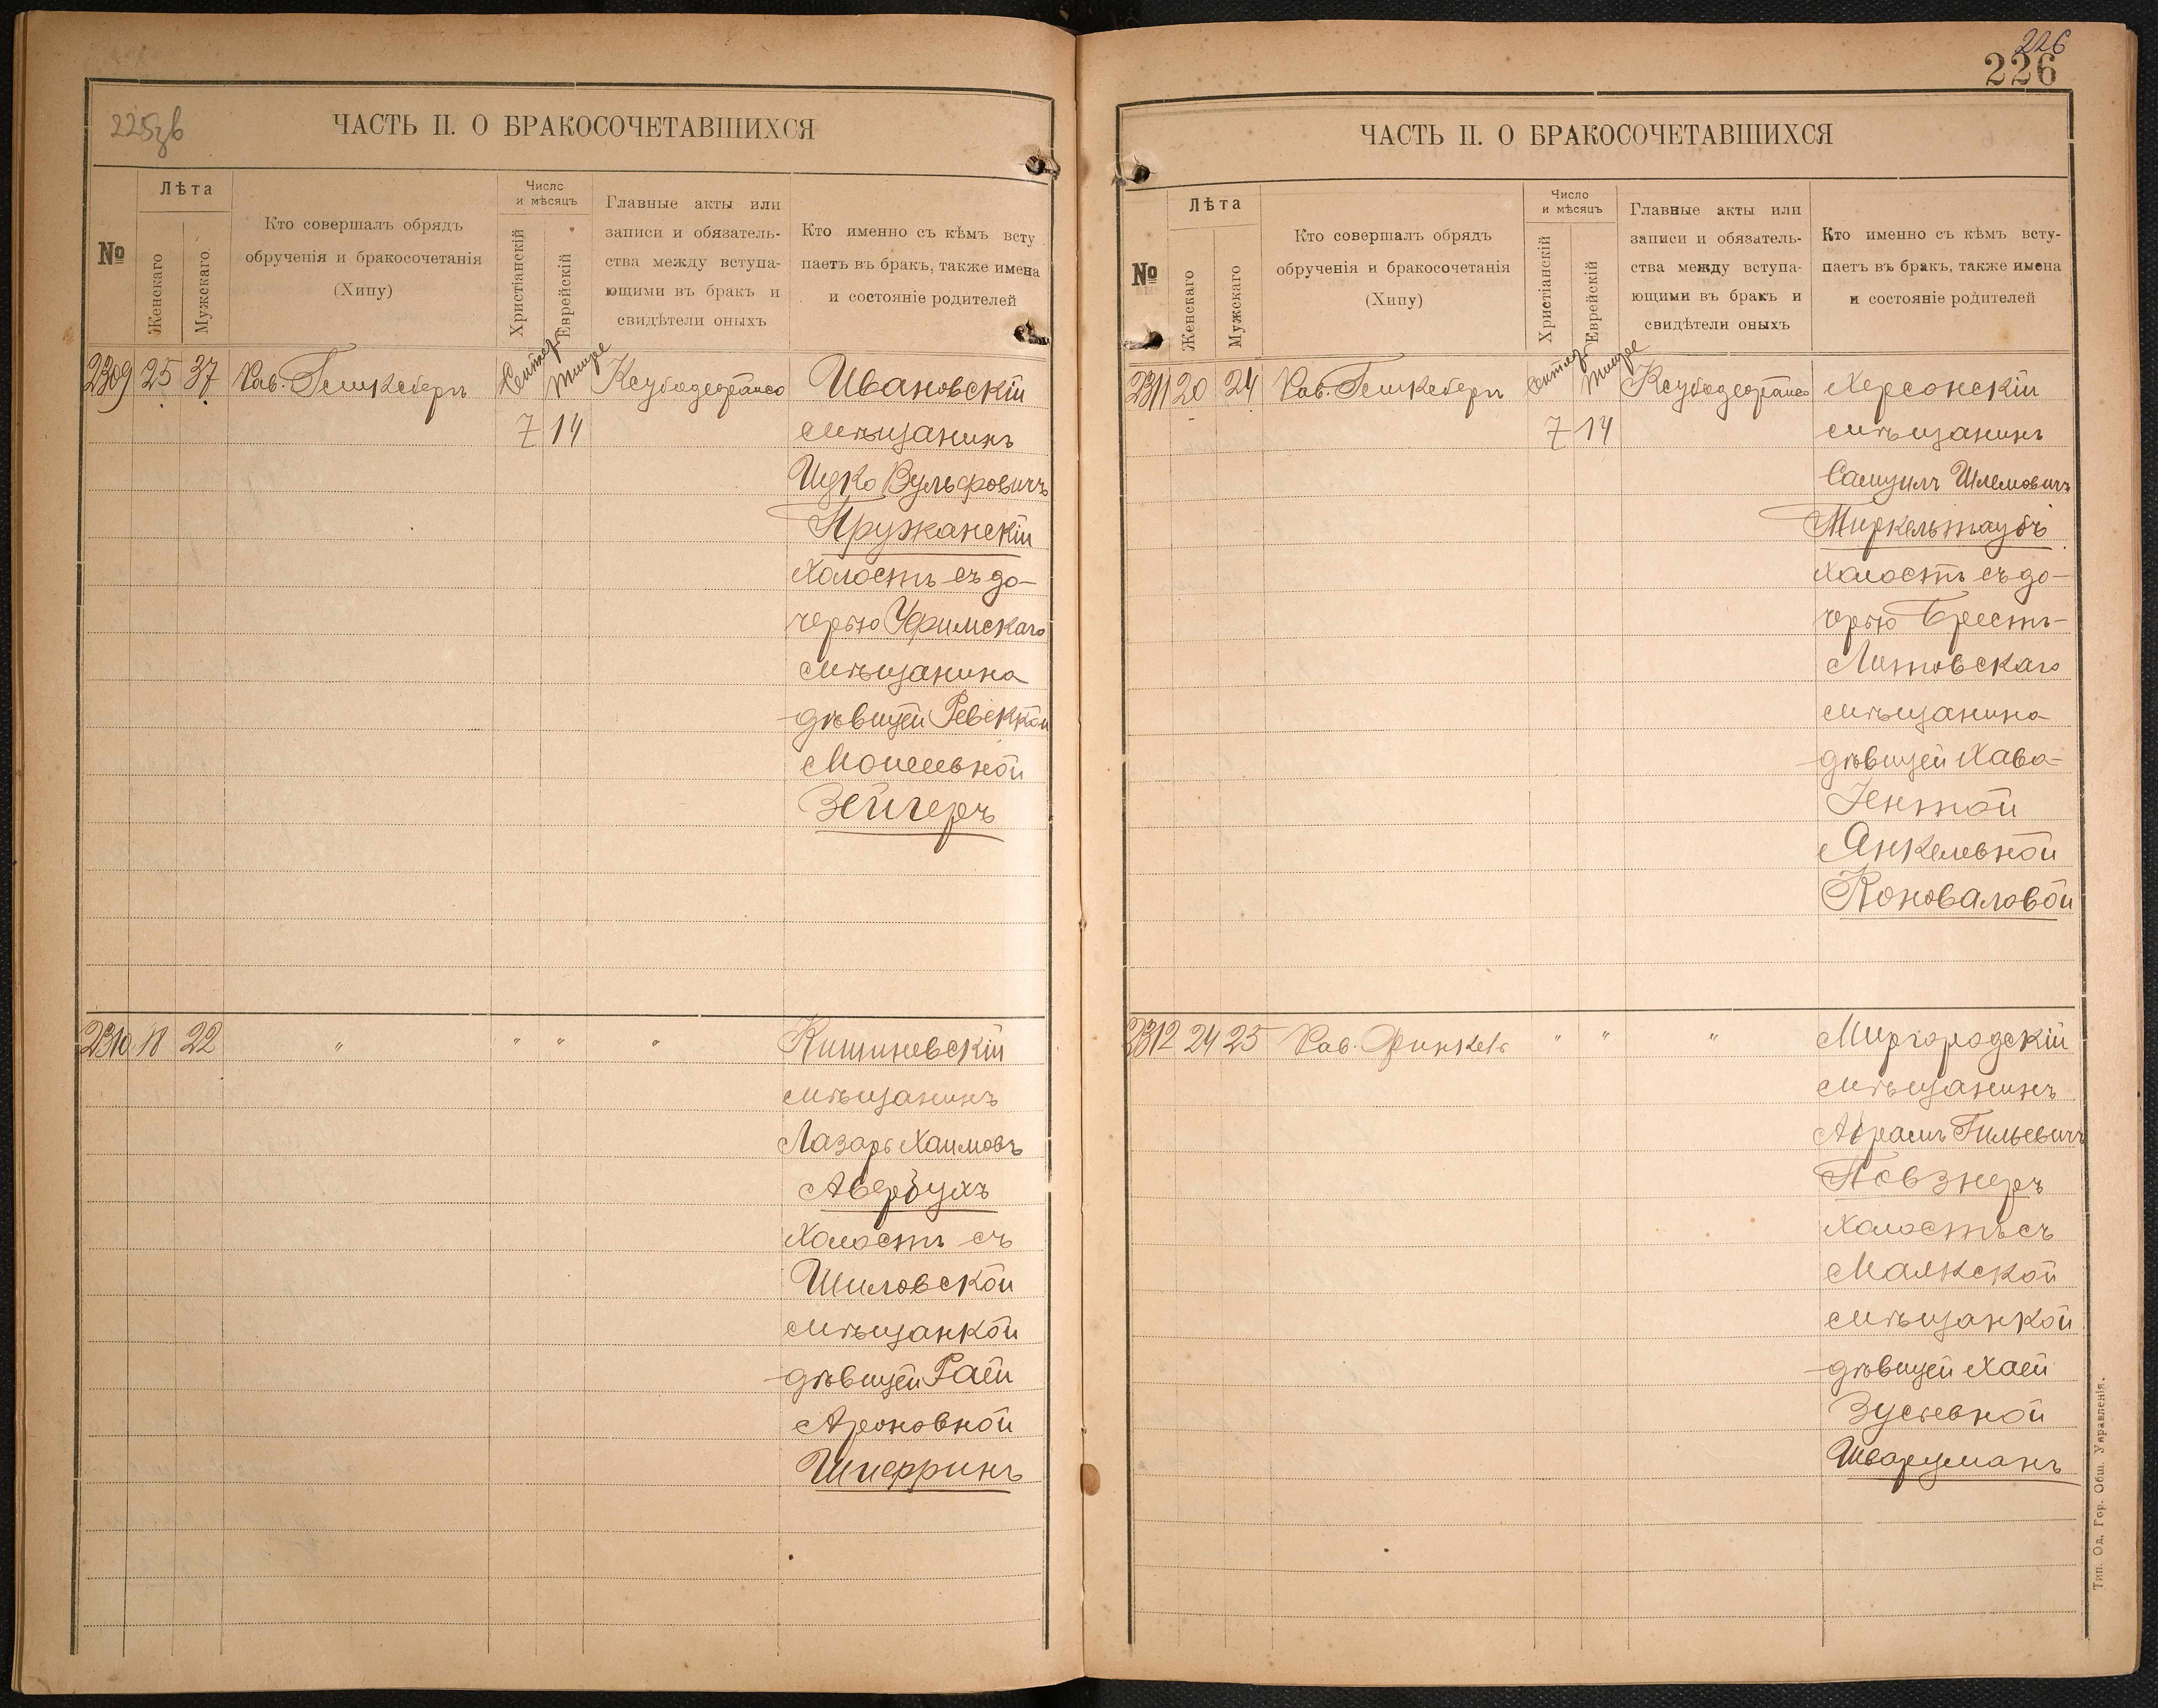 225зв
ЧАСТЬ II. О БРАКОСОЧЕТАВШИХСЯ
№
Лѣта
Женскаго
Мужскаго
Кто совершалъ обрядъ
обрученія и бракосочетанія
(Хипу)
Число
и мѣсяцъ
Христіанскій
Еврейскій
Главные акты или
записи и обязатель-
ства между вступа-
ющими въ бракъ и
свидѣтели оныхъ
Кто именно съ кѣмъ всту
паетъ въ бракъ, также имена
и состояніе родителей
2309 25 37 Рав. Сентяб. Тишре Ивановскій
7 14 мѣщанинъ
Ицко Вульфовичъ
Пружанскій
холостъ съ до-
черью Уфимскаго
мѣщанина
дѣвицей Ревеккой
Моисеевной
Зейгеръ
2310 18 22 " " " " Кишиневскій
мѣщанинъ
Лазарь Хаимовъ
Авербухъ
холостъ съ
Шиловской
мѣщанкой
дѣвицей Раей
Ароновной
226
226
ЧАСТЬ II. О БРАКОСОЧЕТАВШИХСЯ
№
Лѣта
Женскаго
Мужскаго
Кто совершалъ обрядъ
обрученія и бракосочетанія
(Хипу)
Число
и мѣсяцъ
Христіанскій
Еврейскій
Главные акты или
записи и обязатель-
ства между вступа-
ющими въ бракъ и
свидѣтели оныхъ
Кто именно съ кѣмъ всту-
паетъ въ бракъ, также имена
и состояніе родителей
2311 20 24 Рав. Сентяб. Тишре Херсонскій
7 14 мѣщанинъ
Самуилъ Шлемовичъ
Миркельтаубъ
холостъ съ до-
черью Брестъ-
Литовскаго
мѣщанина
дѣвицей Хава-
Гентой
Янкелевной
Коноваловой
2312 24 25 Рав. Финкель " " " Миргородскій
мѣщанинъ
Абрамъ Гилевичъ
Повзнеръ
холостъ съ
Маякской
мѣщанкой
дѣвицей Хаей
Зусевной
Шварцманъ
Тип. Од. Гор. Общ. Управленія.